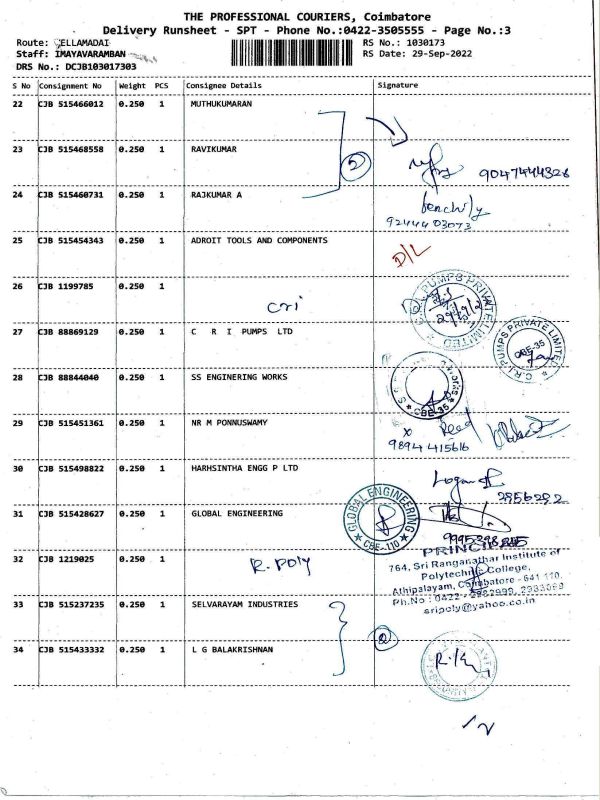 THE PROFESSIONAL COURIERS, Coimbatore
Delivery Runsheet - SPT - Phone No.:0422-3505555 - Page No.:3
Route: VELLAMADAI RS No.: 1030173
Staff: IMAYAVARAMBAN RS Date: 29-Sep-2022
DRS No.: DCJB103017303
S No Consignment No Weight PCS Consignee Details Signature
22 CJB 515466012 0.250 1 MUTHUKUMARAN
23 CJB 515468558 0.250 1 RAVIKUMAR
9047444326
24 CJB 515460731 0.250 1 RAJKUMAR A
9244403073
25 CJB 515454343 0.250 1 ADROIT TOOLS AND COMPONENTS
D/L
26 CJB 1199785 0.250 1
cri
27 CJB 88869129 0.250 1 C R I PUMPS LTD
C.R.I. PUMPS PRIVATE LIMITED
CBE-35
28 CJB 88844040 0.250 1 SS ENGINERING WORKS
CBE-35
29 CJB 515451361 0.250 1 NR M PONNUSWAMY
9894415616
30 CJB 515498822 0.250 1 HARHSINTHA ENGG P LTD
2956292
31 CJB 515428627 0.250 1 GLOBAL ENGINEERING
GLOBAL ENGINEERING
CBE-110
32 CJB 1219025 0.250 1 R. Poly
764, Sri Ranganathar Institute of
Polytechnic College,
Athipalayam, Coimbatore - 641 110,
Ph.No : 0422 -
sripoly@yahoo.co.in
33 CJB 515237235 0.250 1 SELVARAYAM INDUSTRIES
2
34 CJB 515433332 0.250 1 L G BALAKRISHNAN